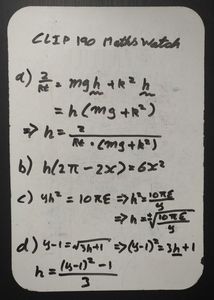 CLIP 190 Maths Watch
a) 2/Rt = mgh + k² h
= h(mg + k²)
=> h = 2/(Rt · (mg + k²))
b) h(2π - 2x) = 6x²
c) yh² = 10πE => h² = 10πE/y
=> h = √(10πE/y)
d) y-1 = √3h+1 => (y-1)² = 3h+1
h = ((y-1)² - 1)/3